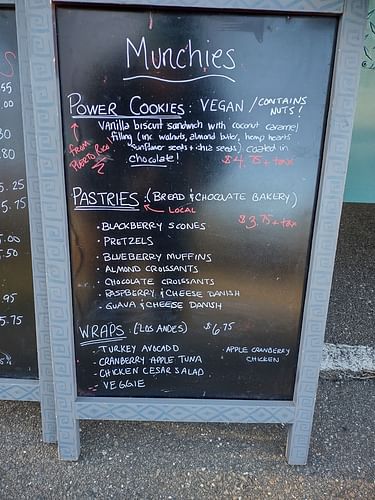 Munchies
POWER COOKIES: VEGAN / CONTAINS NUTS!
Vanilla biscuit sandwich with coconut caramel
filling (inc walnuts, almond butter, hemp hearts
sunflower seeds + chia seeds) coated in
chocolate! $4.75 + tax
from PUERTO RICO
PASTRIES: (BREAD & CHOCOLATE BAKERY)
LOCAL
$3.75 + tax
- BLACKBERRY SCONES
- PRETZELS
- BLUEBERRY MUFFINS
- ALMOND CROISSANTS
- CHOCOLATE CROISSANTS
- RASPBERRY & CHEESE DANISH
- GUAVA & CHEESE DANISH
WRAPS: (LOS ANDES) $6.75
- TURKEY AVOCADO
- APPLE CRANBERRY CHICKEN
- CRANBERRY APPLE TUNA
- CHICKEN CESAR SALAD
- VEGGIE
S
.55
.00
30
.80
5.25
5.75
5.00
.50
.95
5.75